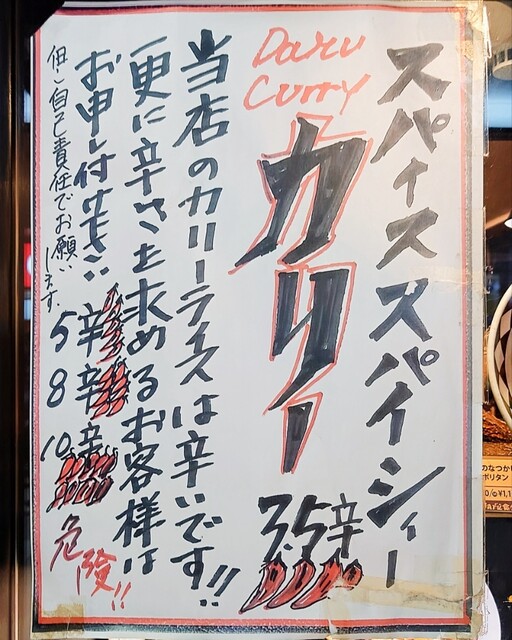 スパイススパイシィー
Daru
Curry
カリー
3.5辛
当店のカリーライスは辛いです!!
更に辛さを求めるお客様は
お申し付け下さい
5辛
8辛
10辛
危険!!
但し自己責任でお願い
します。
のなつかし
ポリタン